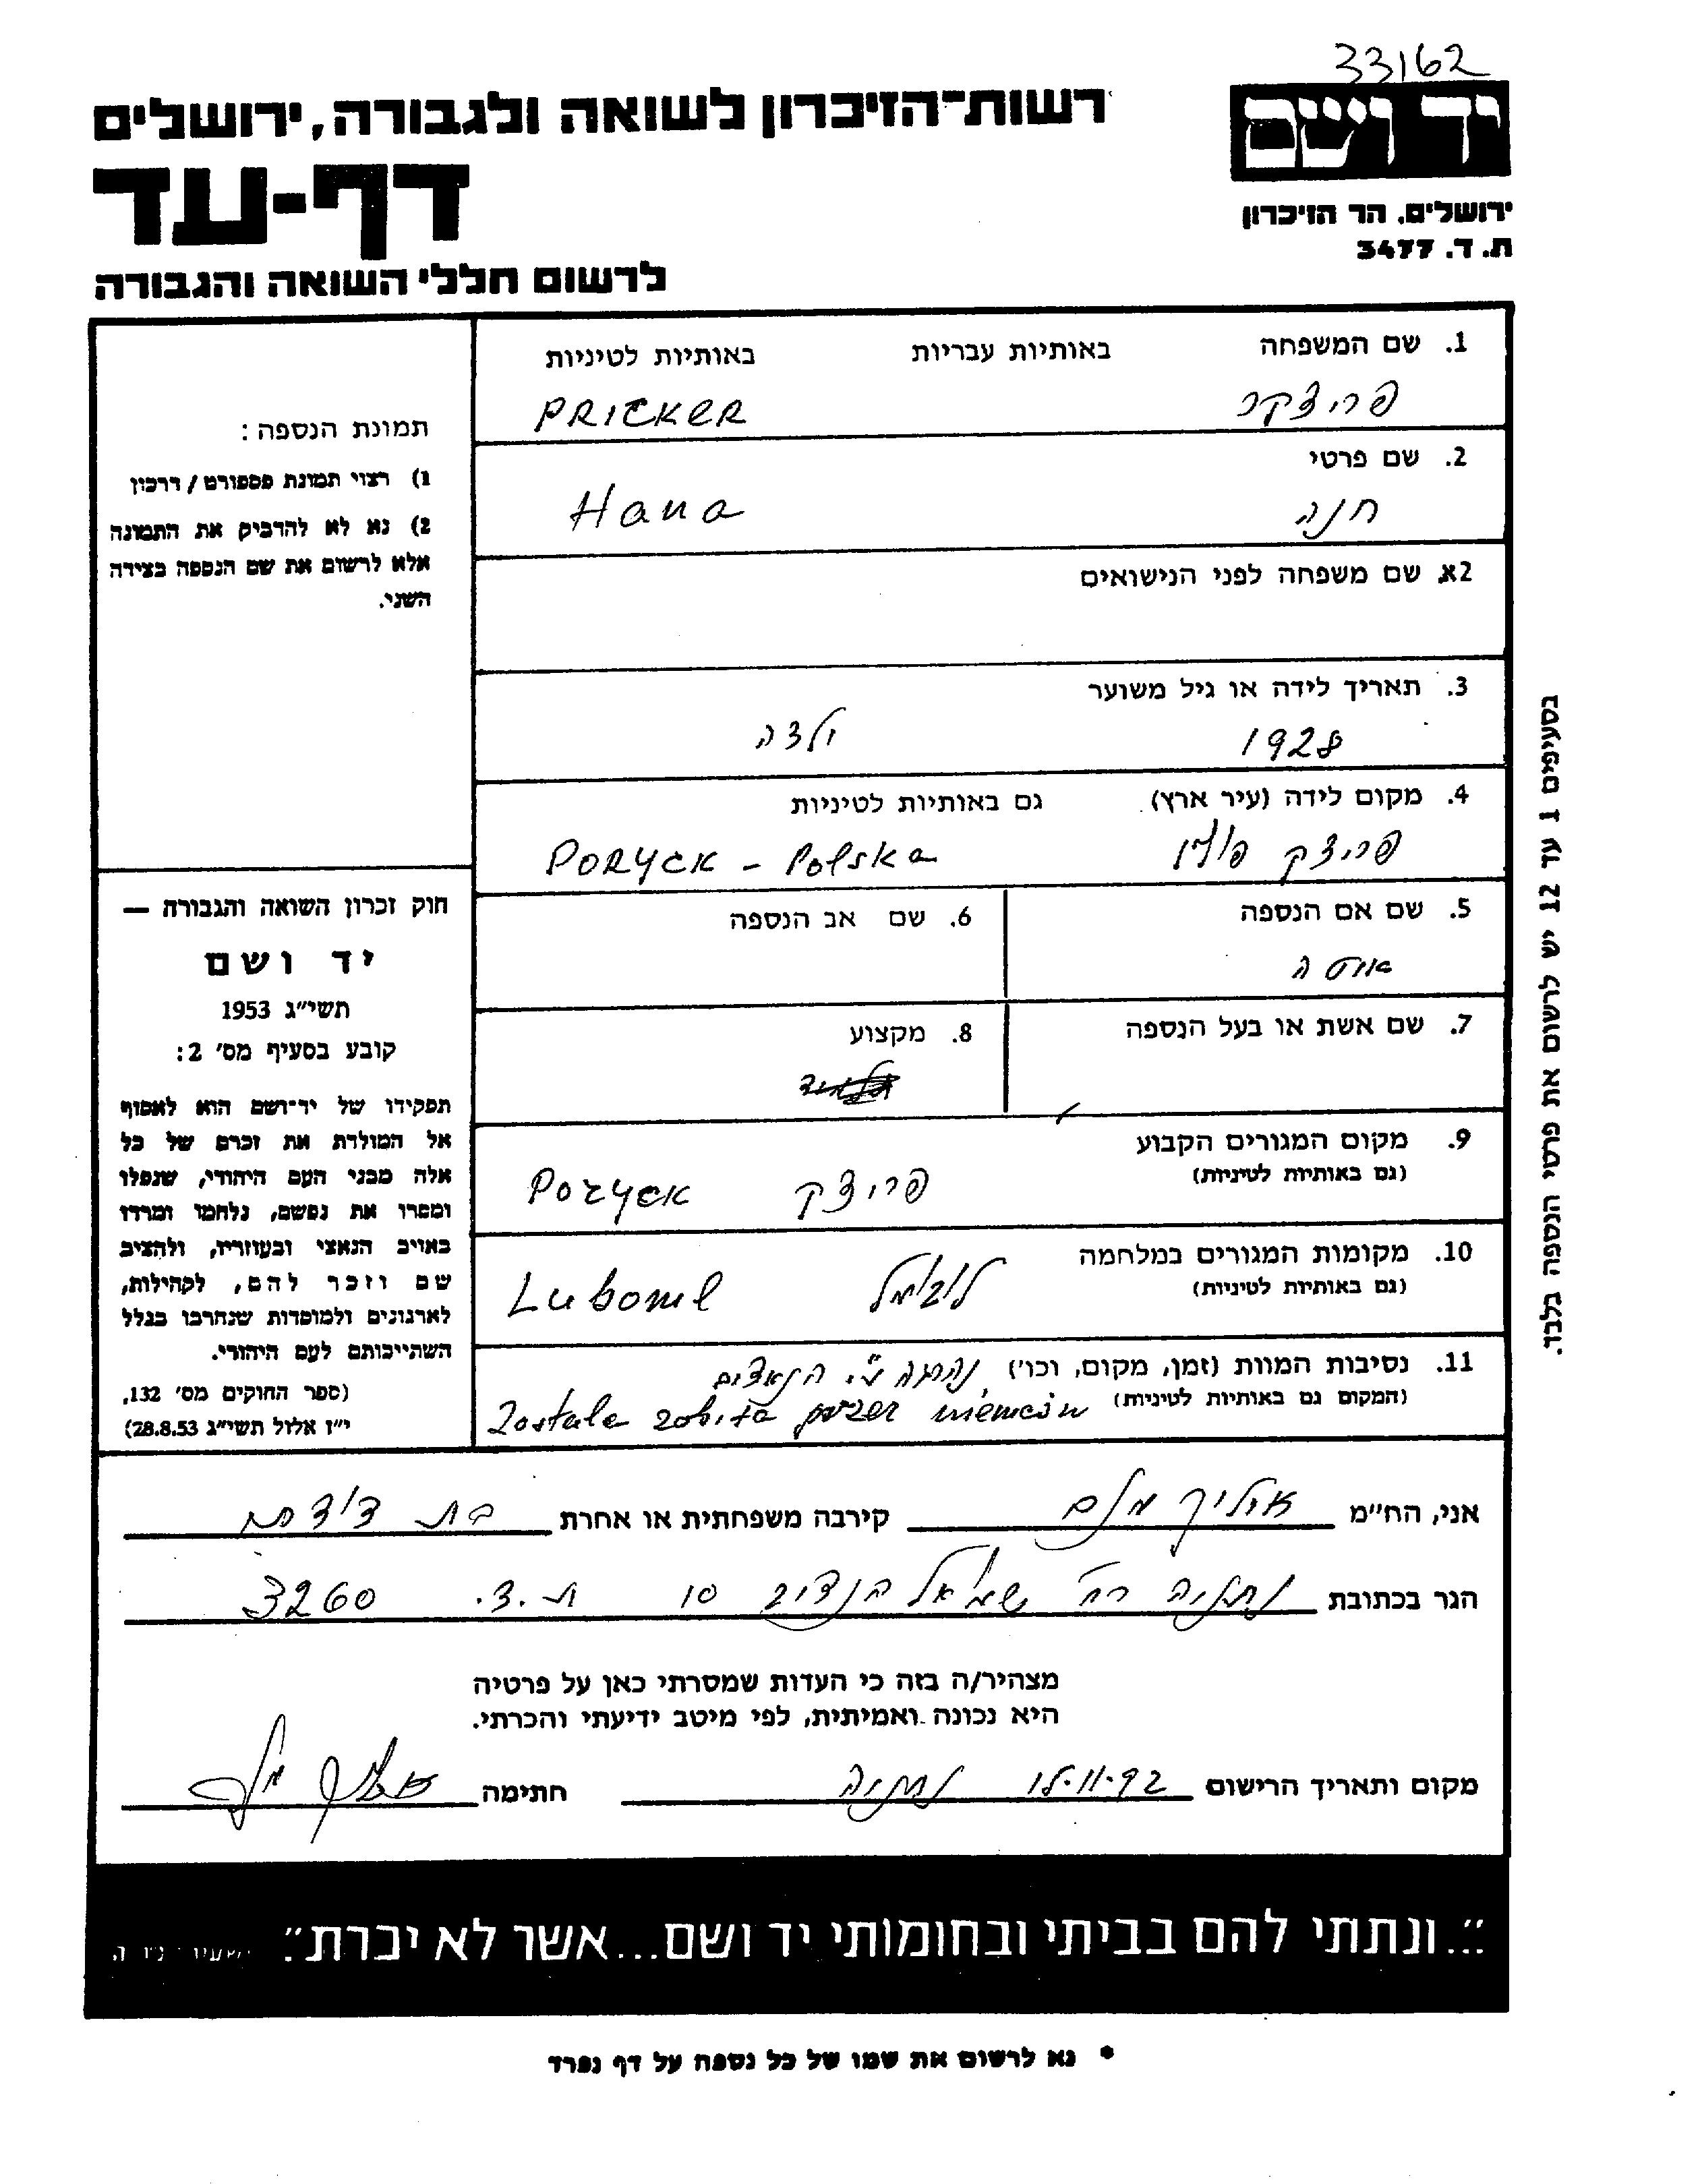 33162
יד ושם
רשות־הזיכרון לשואה ולגבורה, ירושלים
דף-עד
ירושלים, הר הזיכרון
ת. ד. 3477
לרשום חללי השואה והגבורה
1. שם המשפחה באותיות עבריות באותיות לטיניות
פריצקר PRICKER
2. שם פרטי
חנה Hana
2א. שם משפחה לפני הנישואים
3. תאריך לידה או גיל משוער
1928 ילדה
4. מקום לידה (עיר ארץ) גם באותיות לטיניות
פריצק פולין PORYCK - Polska
5. שם אם הנספה
6. שם אב הנספה
7. שם אשת או בעל הנספה
8. מקצוע
9. מקום המגורים הקבוע
(גם באותיות לטיניות)
פריצק Poryck
10. מקומות המגורים במלחמה
(גם באותיות לטיניות)
לובומל Luboml
11. נסיבות המוות (זמן, מקום, וכו') נהרגה ע"י הנאצים
(המקום גם באותיות לטיניות) Zostala zobita przez niemców
תמונת הנספה:
1) רצוי תמונת פספורט / דרכון
2) נא לא להדביק את התמונה
אלא לרשום את שם הנספה בצידה
השני.
חוק זכרון השואה והגבורה —
יד ושם
תשי"ג 1953
קובע בסעיף מס' 2:
תפקידו של יד־ושם הוא לאסוף
אל המולדת את זכרם של כל
אלה מבני העם היהודי, שנפלו
ומסרו את נפשם, נלחמו ומרדו
באויב הנאצי ובעוזריו, ולהציב
שם וזכר להם, לקהילות,
לארגונים ולמוסדות שנחרבו בגלל
השתייכותם לעם היהודי.
(ספר החוקים מס' 132,
י"ז אלול תשי"ג 28.8.53)
בסעיפים 1 עד 12 יש לרשום את פרטי הנספה בלבד.
אני, הח"מ קירבה משפחתית או אחרת בת דודה
הגר בכתובת נתניה רח' שמואל הנציב 10 ת.ד. 3260
מצהיר/ה בזה כי העדות שמסרתי כאן על פרטיה
היא נכונה ואמיתית, לפי מיטב ידיעתי והכרתי.
מקום ותאריך הרישום 15.11.92 נתניה חתימה
"...ונתתי להם בביתי ובחומותי יד ושם...אשר לא יכרת" ישעיה נ"ו ה
* נא לרשום את שמו של כל נספה על דף נפרד